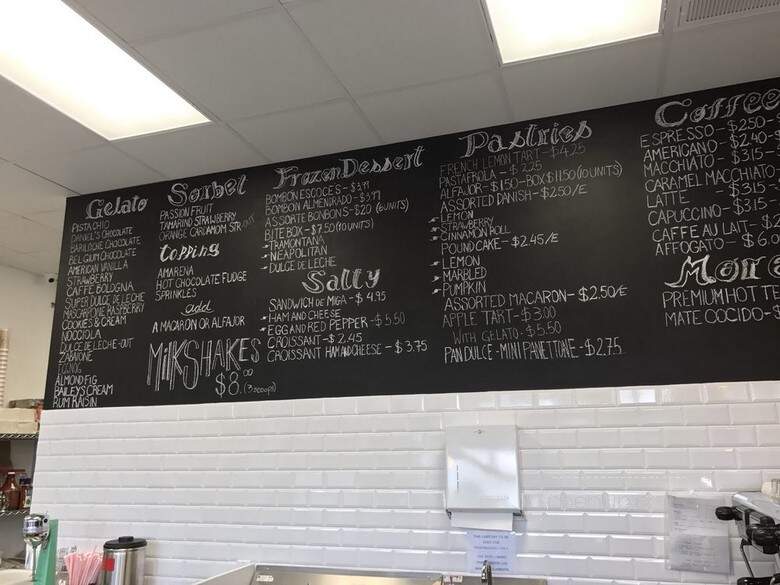 Gelato
PISTACHIO
DANIEL'S CHOCOLATE
BARILOCHE CHOCOLATE
BELGIUM CHOCOLATE
AMERICAN VANILLA
STRAWBERRY
CAFFÉ BOLOGNA
SUPER DULCE DE LECHE
MASCARPONE RASPBERRY
COOKIES & CREAM
NOCCIOLA
DULCE DE LECHE
ZABAIONE
ALMOND FIG
BAILEY'S CREAM
RUM RAISIN
Sorbet
PASSION FRUIT
TAMARIND STRAWBERRY
ORANGE CARDAMOM
topping
AMARENA
HOT CHOCOLATE FUDGE
SPRINKLES
add
A MACARON OR ALFAJOR
MILKSHAKES
$8.00 (3 scoops)
Frozen Dessert
BOMBON ESCOCES - $3.99
BOMBON ALMENDRADO - $3.99
ASSORTE BONBONS - $20 (6 UNITS)
BITE BOX - $7.50 (10 UNITS)
TRAMONTANA
NEAPOLITAN
DULCE DE LECHE
Salty
SANDWICH DE MIGA - $4.95
HAM AND CHEESE
EGG AND RED PEPPER - $5.50
CROISSANT - $2.45
CROISSANT HAM AND CHEESE - $3.75
Pastries
FRENCH LEMON TART - $4.25
PASTAFROLA - $2.25
ALFAJOR - $1.50 - BOX $11.50 (10 UNITS)
ASSORTED DANISH - $2.50/E
LEMON
STRAWBERRY
CINNAMON ROLL
POUND CAKE - $2.45/E
LEMON
MARBLED
PUMPKIN
ASSORTED MACARON - $2.50/E
APPLE TART - $3.00
WITH GELATO - $5.50
PAN DULCE - MINI PANETTONE - $2.75
Coffee
ESPRESSO - $2.50 -
AMERICANO - $2.40 -
MACCHIATO - $3.15 -
CARAMEL MACCHIATO
LATTE - $3.15 -
CAPUCCINO - $3.15 -
CAFFE AU LAIT - $2.
AFFOGATO - $6.0
More
PREMIUM HOT TE
MATE COCIDO - $